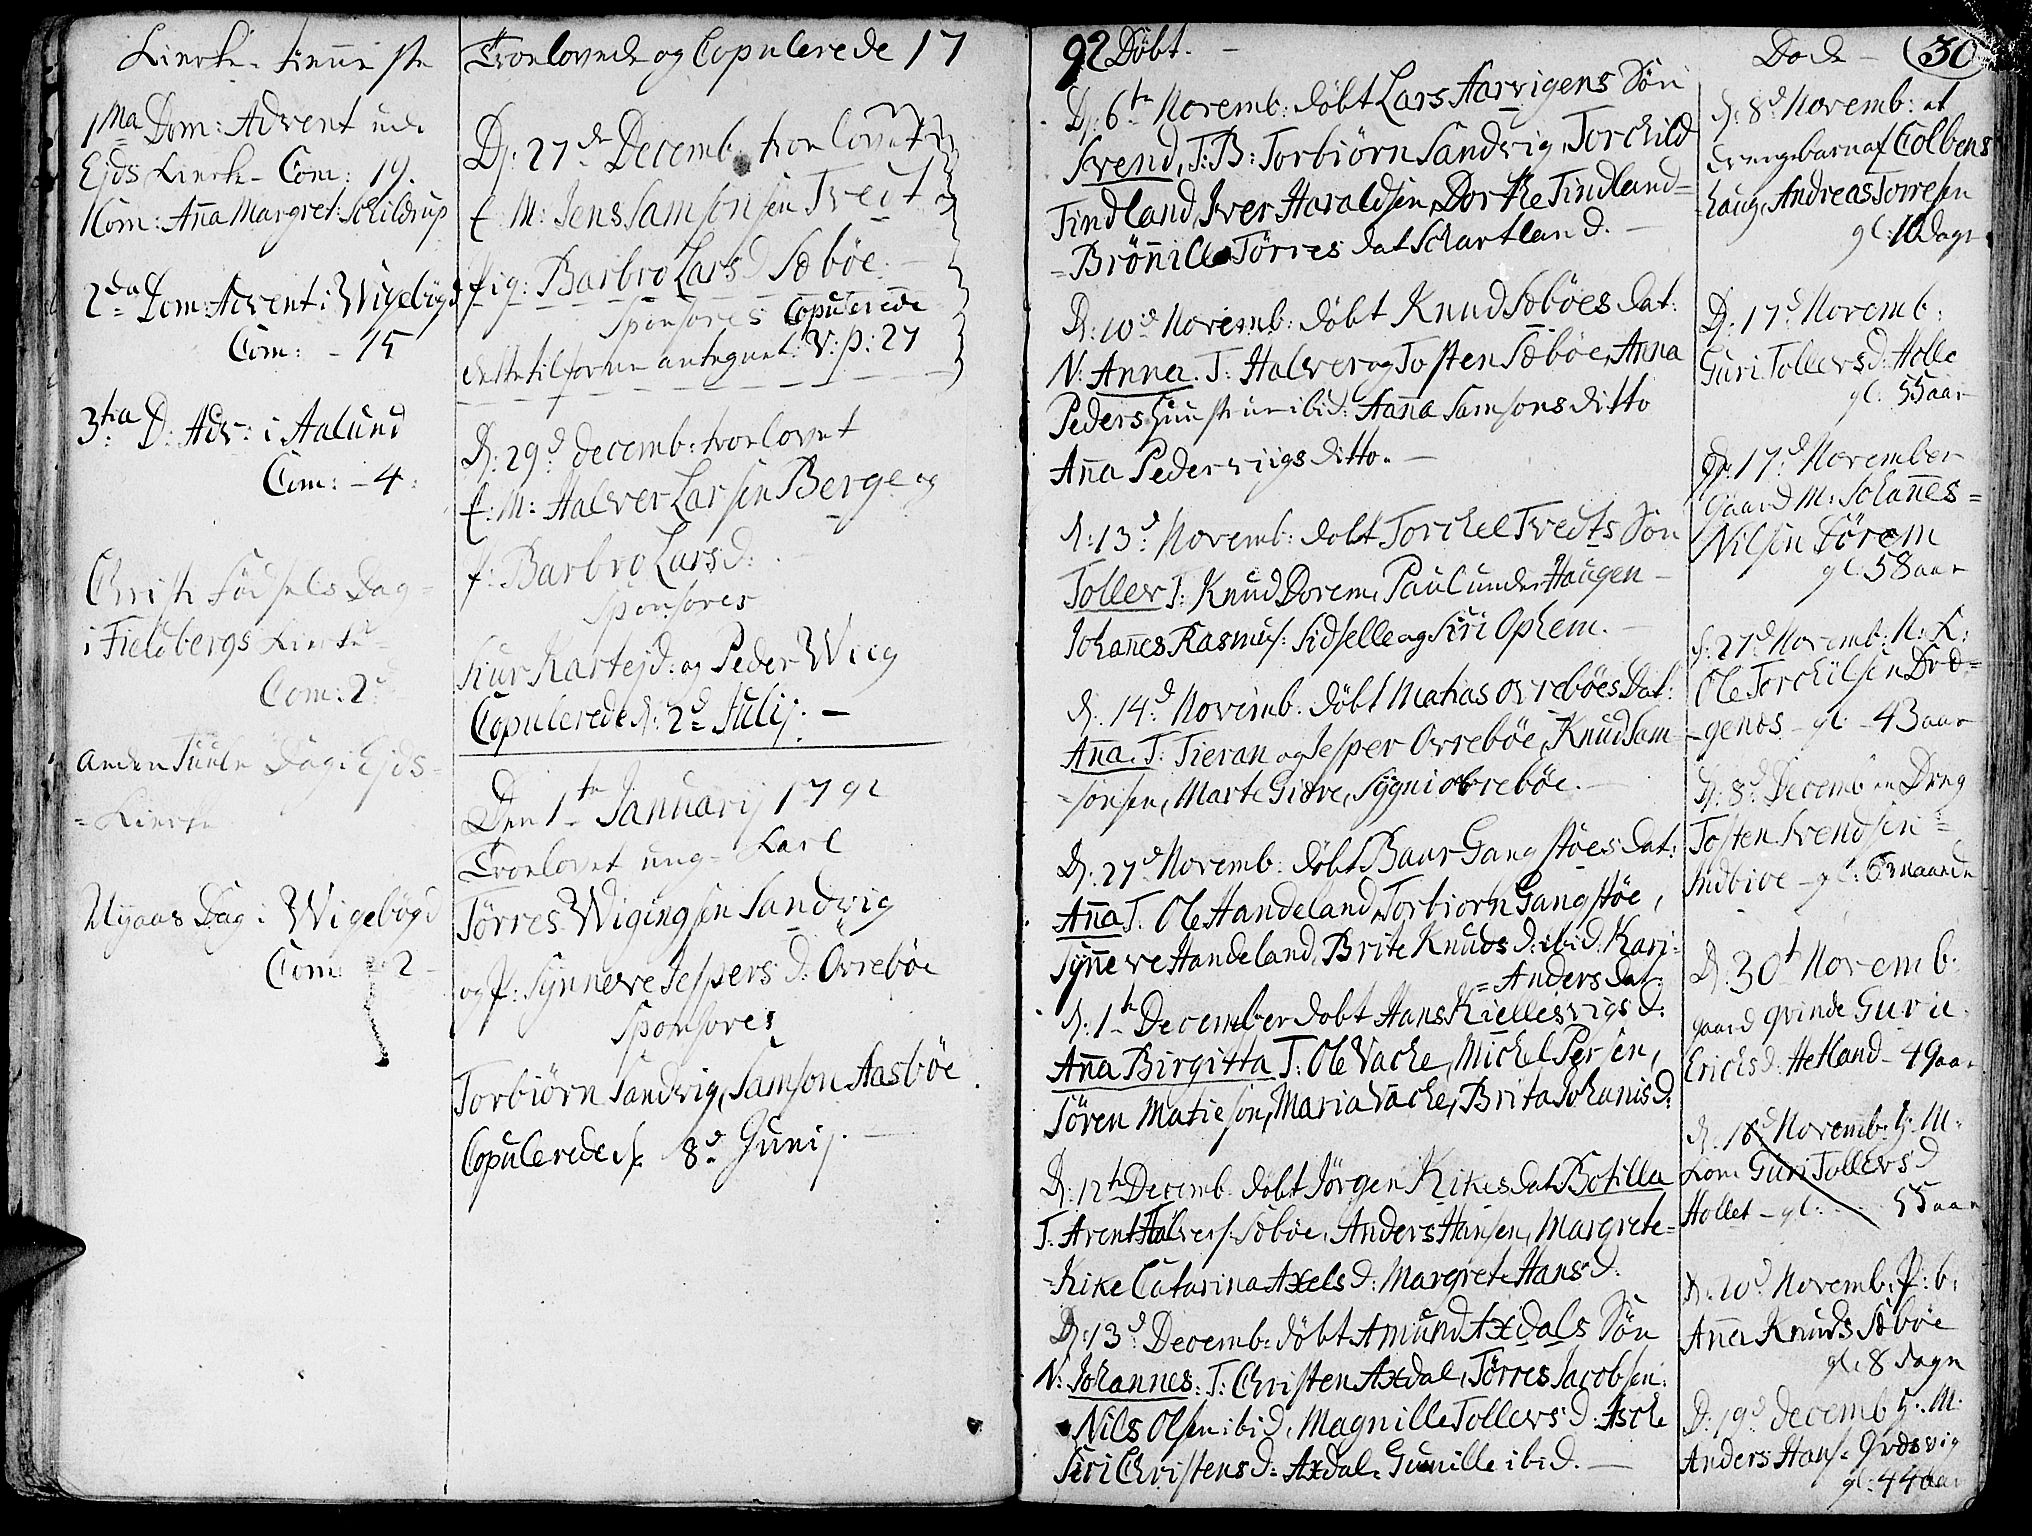 Kierke tieniste
1ma Dom: Advent udi
Ejds Kierke Com: 19.
Kom: Aña Margret Schildrup
2da Dom: Advent i Wigebögd
Com: - 15
3tia D: Adv: i Aalund
Com: - 4:
Christi Födsels Dag
i Fieldbergs Kierke
Com: 2
Anden Juule Dag i Ejds
= Kierke
Nyaas Dag i Wigebögd
Com: 2
Trolovede og Copulerede 17
D: 27de Decemb: trolovet
E: M: Jens Samsonsen Tvedt
Pig: Barbro Larsd Söböe
Sponsores Copulerede
dette tilforne antegnet: V: p: 27
D: 29d decemb: trolovet
E: M: Halver Larsen Berge og
P: Barbro Larsd:
Sponsores
Siur Kartejd: og Peder Wiig
Copulerede d: 2d Julij. -
Den 1te Januarij 1792
Trolovet ung= Karl
Törres Wigingsen Sandvig
og P: Synneve Jespers d: Övreböe
Sponsores
Torbiörn Sandvig, Samson Aasböe
Copulerede d: 8d Junij. -
92 Döbt. -
D: 6te Novemb: döbt Lars Aarvigens Sön
Svend, T: B: Torbiörn Sandvig, Torchild
Tindland, Iver Haraldsen, Dorthe Tindland=
= Bröñille Törres dat Schartland. -
D: 10d Novemb: döbt Knud Söböes dat:
N: Anna. T: Halver og Tosten Söböe, Anna
Peders Huustrue ibid: Aaña Samsons ditto
Aña Peder Viigs ditto. -
D: 13d Novemb: döbt Torchel Tvedts Sön
Toller T: Knud Dorem, Paul under Haugen
Johañes Rasmus: Sidselle og Siri Ophem. -
D: 14d Novemb: döbt Matias Ovreböes Dat:
Aña. T: Tieran og Jesper Ovreböe, Knud Sam=
= sonsen, Marte Giöre, Sygni Ovreböe. -
D: 27d Novemb: döbt Baar Gangstöes Dat:
Aña T: Ole Handeland, Torbiorn Gangstöe,
Syñeve Handeland, Brite Knuds d: ibid: Kari
= Anders dat:
D: 1te December döbt Hans Kiellesvigs d:
Aña Birgitta T: Ole Vache, Michel Persen,
Sören Matieson, Maria Vache, Brita Johanisd:
D: 12te Decemb: döbt Jörgen Kikes dat Botilla
T: Arent Halvers: Söböe, Anders Hansen, Margrete=
= Kike Catarina Axels d: Margrete Hansd:
D: 13d Decemb: döbt Amund Axdals Sön
N: Johannes: T: Christen Axdal, Törres Jacobsen:
Nils Olsen ibid, Magnille Tollers d: Asche
Siri Christens d: Axdal: Guñille ibid. -
Dode - 30
D: 8d Novemb: et
drengebarn af Colbens
= houg, Andreas Torresen
gl: 10 dage
D: 17d Novemb:
Guri Tollers d: Holle
gl: 55 aar
D: 17d November
Gaard M: Johañes=
Nilsen Dörem
gl: 58 aar
D: 27d Novemb: N: K:
Ole Torchilsen Dröd=
= genös - gl: - 43 aar
D: 8d Decemb en Dreng
Tosten Svendsen
Indbioe - gl: 6 maande
D: 30t Novemb:
gaard qvinde Guri
Erichsd: Hetland - 49 aar
D: 18d Novemb: G: M:
Kone Guri Tollers d
Hollet - gl: 55 aar
D: 10d Novemb: P: b:
Aña Knuds Söböe
gl: 8 dage
D: 19d decemb G: M:
Anders Hans:
gl: 44 aar